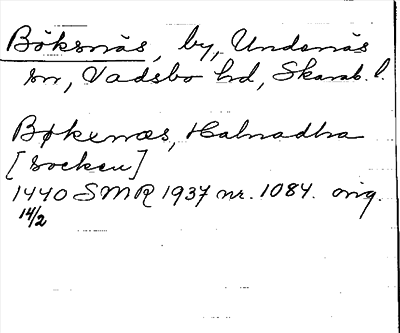 Böksnäs, by, Undenäs
sn, Vadsbo hd, Skarab. l.
Bøkenæs, Halnadha
[socken]
1440 SMR 1937 nr. 1084. orig.
14/2